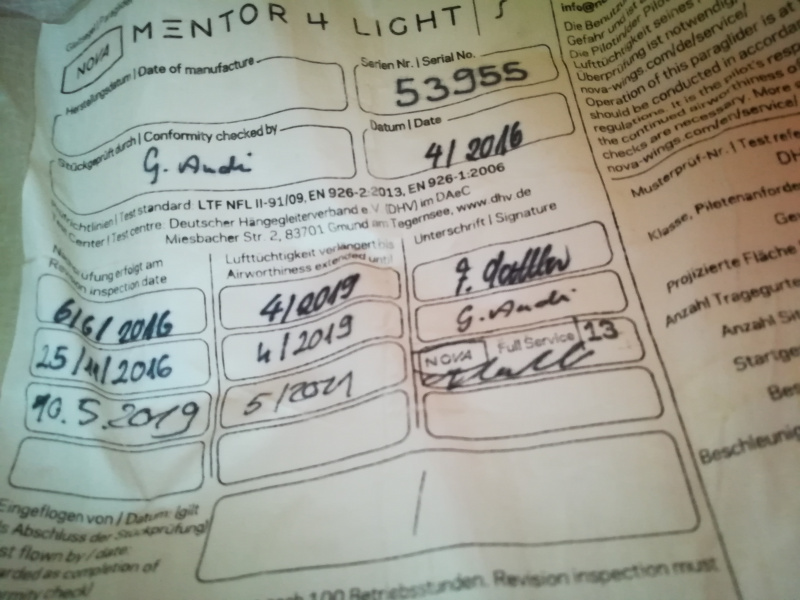 NOVA MENTOR 4 LIGHT | S
Herstellungsdatum | Date of manufacture
Serien Nr. | Serial No.
53955
Stückgeprüft durch | Conformity checked by
G. Andi
Datum | Date
4/2016
Test standard: LTF NFL II-91/09, EN 926-2:2013, EN 926-1:2006
Test centre: Deutscher Hängegleiterverband e.V. (DHV) im DAeC
Miesbacher Str. 2, 83701 Gmund am Tegernsee, www.dhv.de
erfolgt am
inspection date
Lufttüchtigkeit verlängert bis
Airworthiness extended until
Unterschrift | Signature
6/6/2016
4/2019
25/11/2016
4/2019
G. Andi
10.5.2019
5/2021
NOVA Full Service 13
Eingeflogen von / Datum: (gilt
als Abschluss der Stückprüfung)
flown by / date:
as completion of
check)
100 Betriebsstunden. Revision inspection must
info@
Die
Gefahr und
Die Pilotin/der
Lufttüchtigkeit seines
Überprüfung ist notwendig.
nova-wings.com/de/service/
Operation of this paraglider is at
should be conducted in accordan
regulations. It is the pilot's resp
the continued airworthiness of
checks are necessary. More
nova-wings.com/en/service/
Musterprüf-Nr. | Test refe
DH
Klasse, Pilotenanforde
Projizierte Fläche
Anzahl Tragegurte
Anzahl Sit
Startge
Bes
Beschleunig